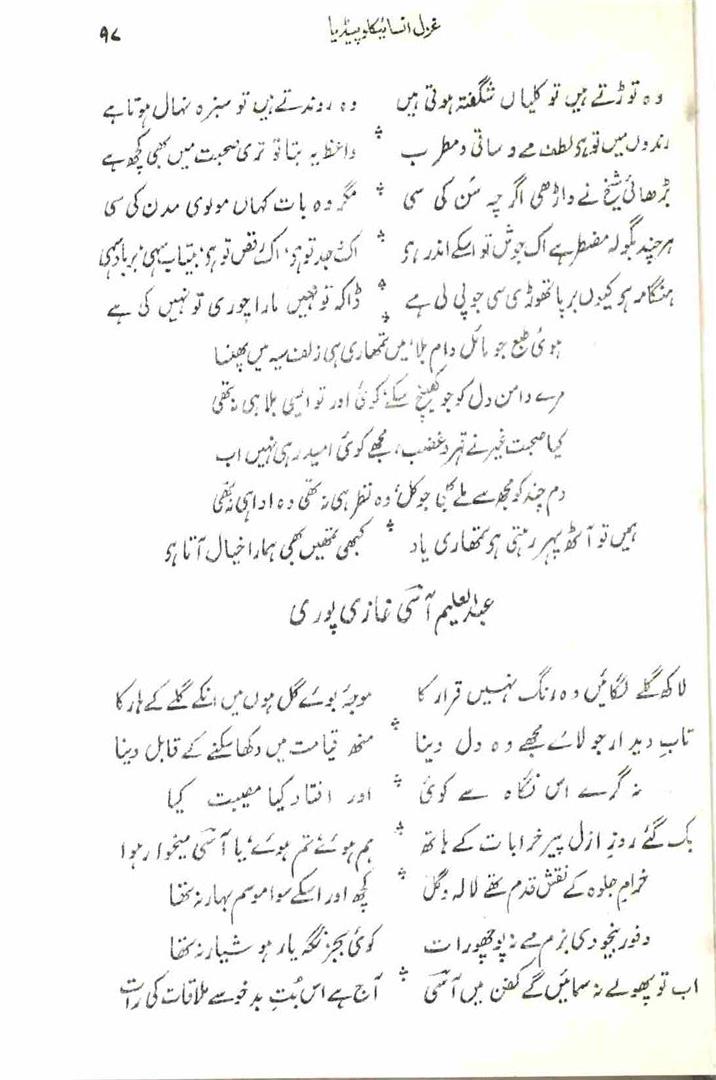 ۹۷ غزل انسائیکلوپیڈیا
وہ توڑتے ہیں تو کلیاں شگفتہ ہوتی ہیں وہ روندتے ہیں تو سبزہ نہال ہوتا ہے
رندوں میں تو ہی لطف مے و ساقی و مطرب واعظ یہ بتا تو تری صحبت میں بھی کچھ ہے
بڑھائی شیخ نے داڑھی اگرچہ سَن کی سی مگر وہ بات کہاں مولوی مدن کی سی
ہر چند بگولہ مضطر ہے اک جوش تو اسکے اندر ہے اک وجد تو ہے، اک رقص تو ہے، بیتاب سہی، برباد سہی
ہنگامہ ہو کیوں برپا تھوڑی سی جو پی لی ہے ڈاکہ تو نہیں مارا چوری تو نہیں کی ہے
ہوئی طبع جو مائل دام بلا، میں تمھاری ہی زلف سیہ میں پھنسا
مرے دامن دل کو جو کھینچ سکے کوئی اور تو ایسی بلا ہی نہ تھی
کیا صحبت غیر نے قہر و غضب، مجھے کوئی امید رہی نہیں اب
دم چند کو مجھ سے ملے بھی جو کل، وہ نظر ہی نہ تھی وہ ادا ہی نہ تھی
ہمیں تو آٹھ پہر رہتی ہو تمھاری یاد کبھی تمھیں بھی ہمارا خیال آتا ہو
عبدالعلیم آسیؔ غازی پوری
لاکھ گلے لگائیں وہ رنگ نہیں قرار کا موجۂ بوئے گل ہوں میں انکے گلے کے ہار کا
تاب دیدار جو لائے مجھے وہ دل دینا منھ قیامت میں دکھا سکنے کے قابل دینا
نہ گرے اس نگاہ سے کوئی اور افتاد کیا مصیبت کیا
بک گئے روزِ ازل پیر خرابات کے ہاتھ ہم ہوئے تم ہوئے یا آسیؔ میخوار ہوا
خرام جلوہ کے نقش قدم تھے لالہ و گل کچھ اور اسکے سوا موسم بہار نہ تھا
وفور بیخودی بزم مے نہ پوچھو رات کوئی بجز نگہ یار ہوشیار نہ تھا
اب تو پھولے نہ سمائیں گے کفن میں آسیؔ آج ہے اس بُتِ بدخو سے ملاقات کی رات